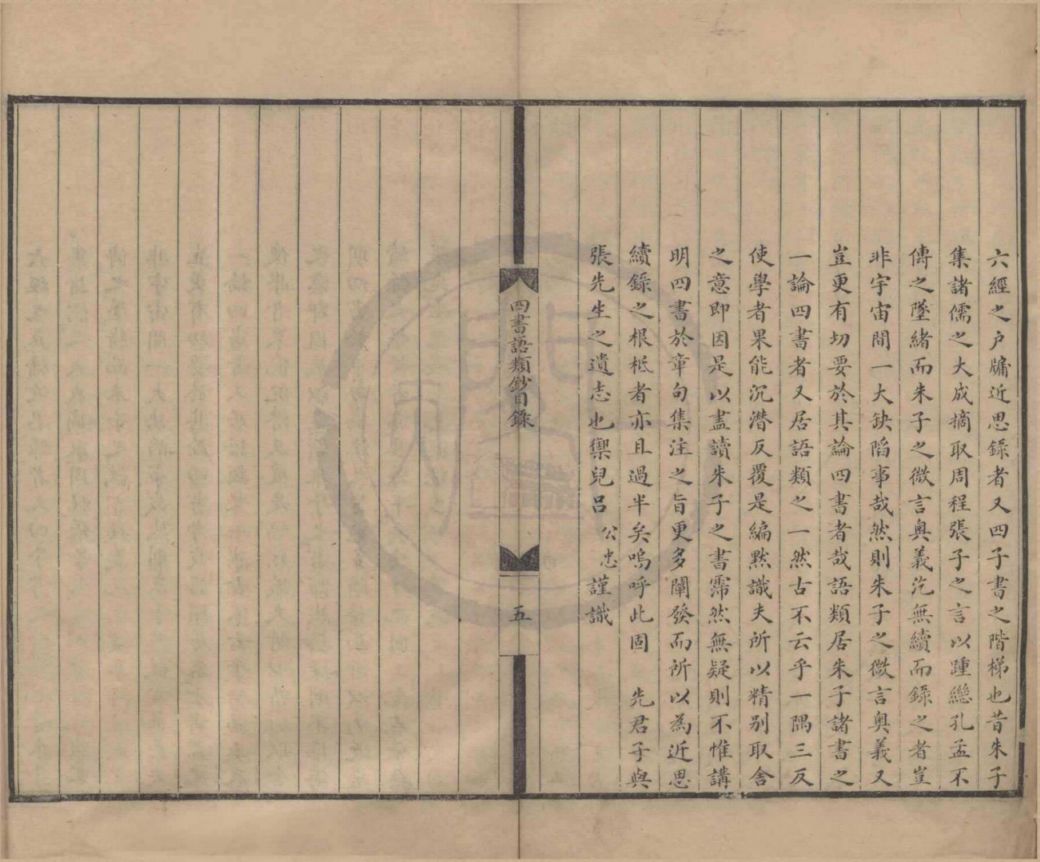 六經之户牖近思錄者又四子書之階梯也昔朱子
集諸儒之大成摘取周程張子之言以踵繼孔孟不
傳之墜緒而朱子之微言奥義汔無續而錄之者豈
非宇宙間一大缺䧟事哉然則朱子之微言奥義又
豈更有切要於其論四書者哉語類居朱子諸書之
一論四書者又居語類之一然古不云乎一隅三反
使學者果能沉潜反覆是編默識夫所以精别取舍
之意即因是以盡讀朱子之書霈然無疑則不惟講
明四書於章句集注之旨更多闡發而所以為近思
續錄之根柢者亦且過半矣嗚呼此固　先君子與
張先生之遺志也禦兒吕　公忠謹識
四書語類鈔目錄
五